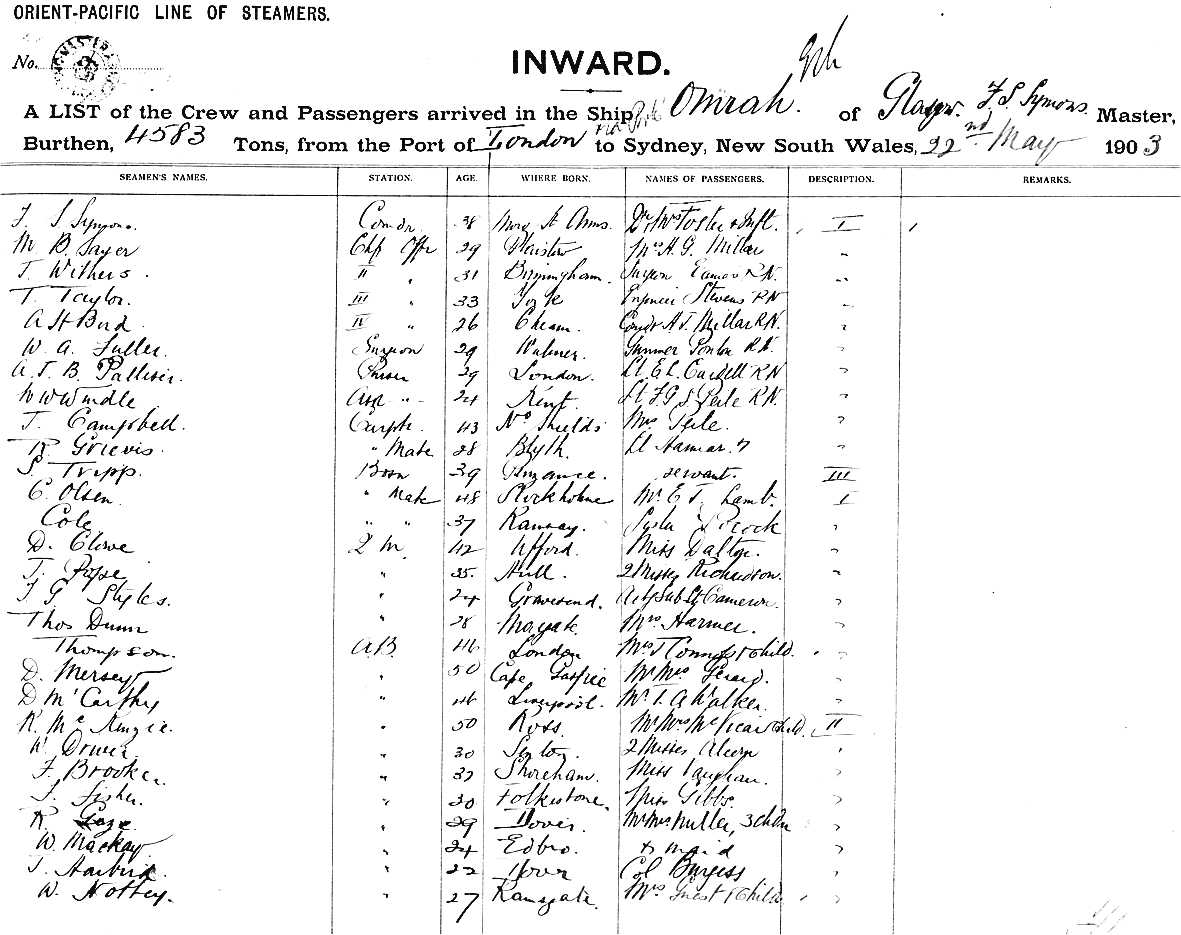 ORIENT-PACIFIC LINE OF STEAMERS.
No.
INWARD.
A LIST of the Crew and Passengers arrived in the Ship Omrah of Glasgow. F. S Symons Master,
Burthen, 4583 Tons, from the Port of London to Sydney, New South Wales, 22nd May 1903
SEAMEN'S NAMES. STATION. AGE. WHERE BORN. NAMES OF PASSENGERS. DESCRIPTION. REMARKS.
F. S Symons. Comdr. 38 Dr Mrs Foster & Inft. I
M B. Sayer Chf Offr 29 Plaistow Mrs A. G. Millar "
T. Withers. II " 31 Birmingham. Surgeon R.N. "
T. Taylor. III " 33 York Engineer Stevens R N "
A H Bird. IV " 26 Cheam. Comdr A J. Millar R.N. "
W. A. Fuller. Surgeon 29 Walmer. Gunner R.N. "
A. J. B. Palliser. Purser 29 London. Lt. E. L. Cardell R N "
W W Windle Asst " 24 Kent. Lt F. G. S Peile R.N. "
J. Campbell. Carptr. 43 No Shields Mrs Peile. "
R. Grievis " Mate 28 Blyth. Lt "
S Tripp. Bosn 39 Penzance. servant. III
C. Olsen " Mate 48 Stockholm Mr E T. Lamb. I
Cole " " 37 Ramsay. "
D. Clowe Q M. 42 Ufford. Miss Dalton. "
T. Pope " 35. Hull. 2 Misses Richardson. "
F G. Styles. " 24 Gravesend. Actg Sub Lt Cameron. "
Thos Dunn " 28 Margate. Mrs Harmer. "
Thompson. A.B. 46 London Mrs J Connors & Child. "
D. Mersey " 50 Cape Gaspie Mr Mrs Gerard. "
D McCarthy " 46 Liverpool. Mr T. A Walker. "
K. McKenzie. " 50 Ross. Mr Mrs McVicar & Child. II
W. Dower " 30 2 Misses "
F. Brooker. " 32 Shoreham. Miss Vaughan. "
J. Fisher. " 30 Folkestone. Miss Gibbs. "
R. Goze " 29 Dover. Mr Mrs Miller, 3 chdn "
W. Mackay. " 24 Edbro. & maid "
T. " 22 Dover Col Burgess "
W. Nottey. " 27 Ramsgate. Mrs Guest & Child "